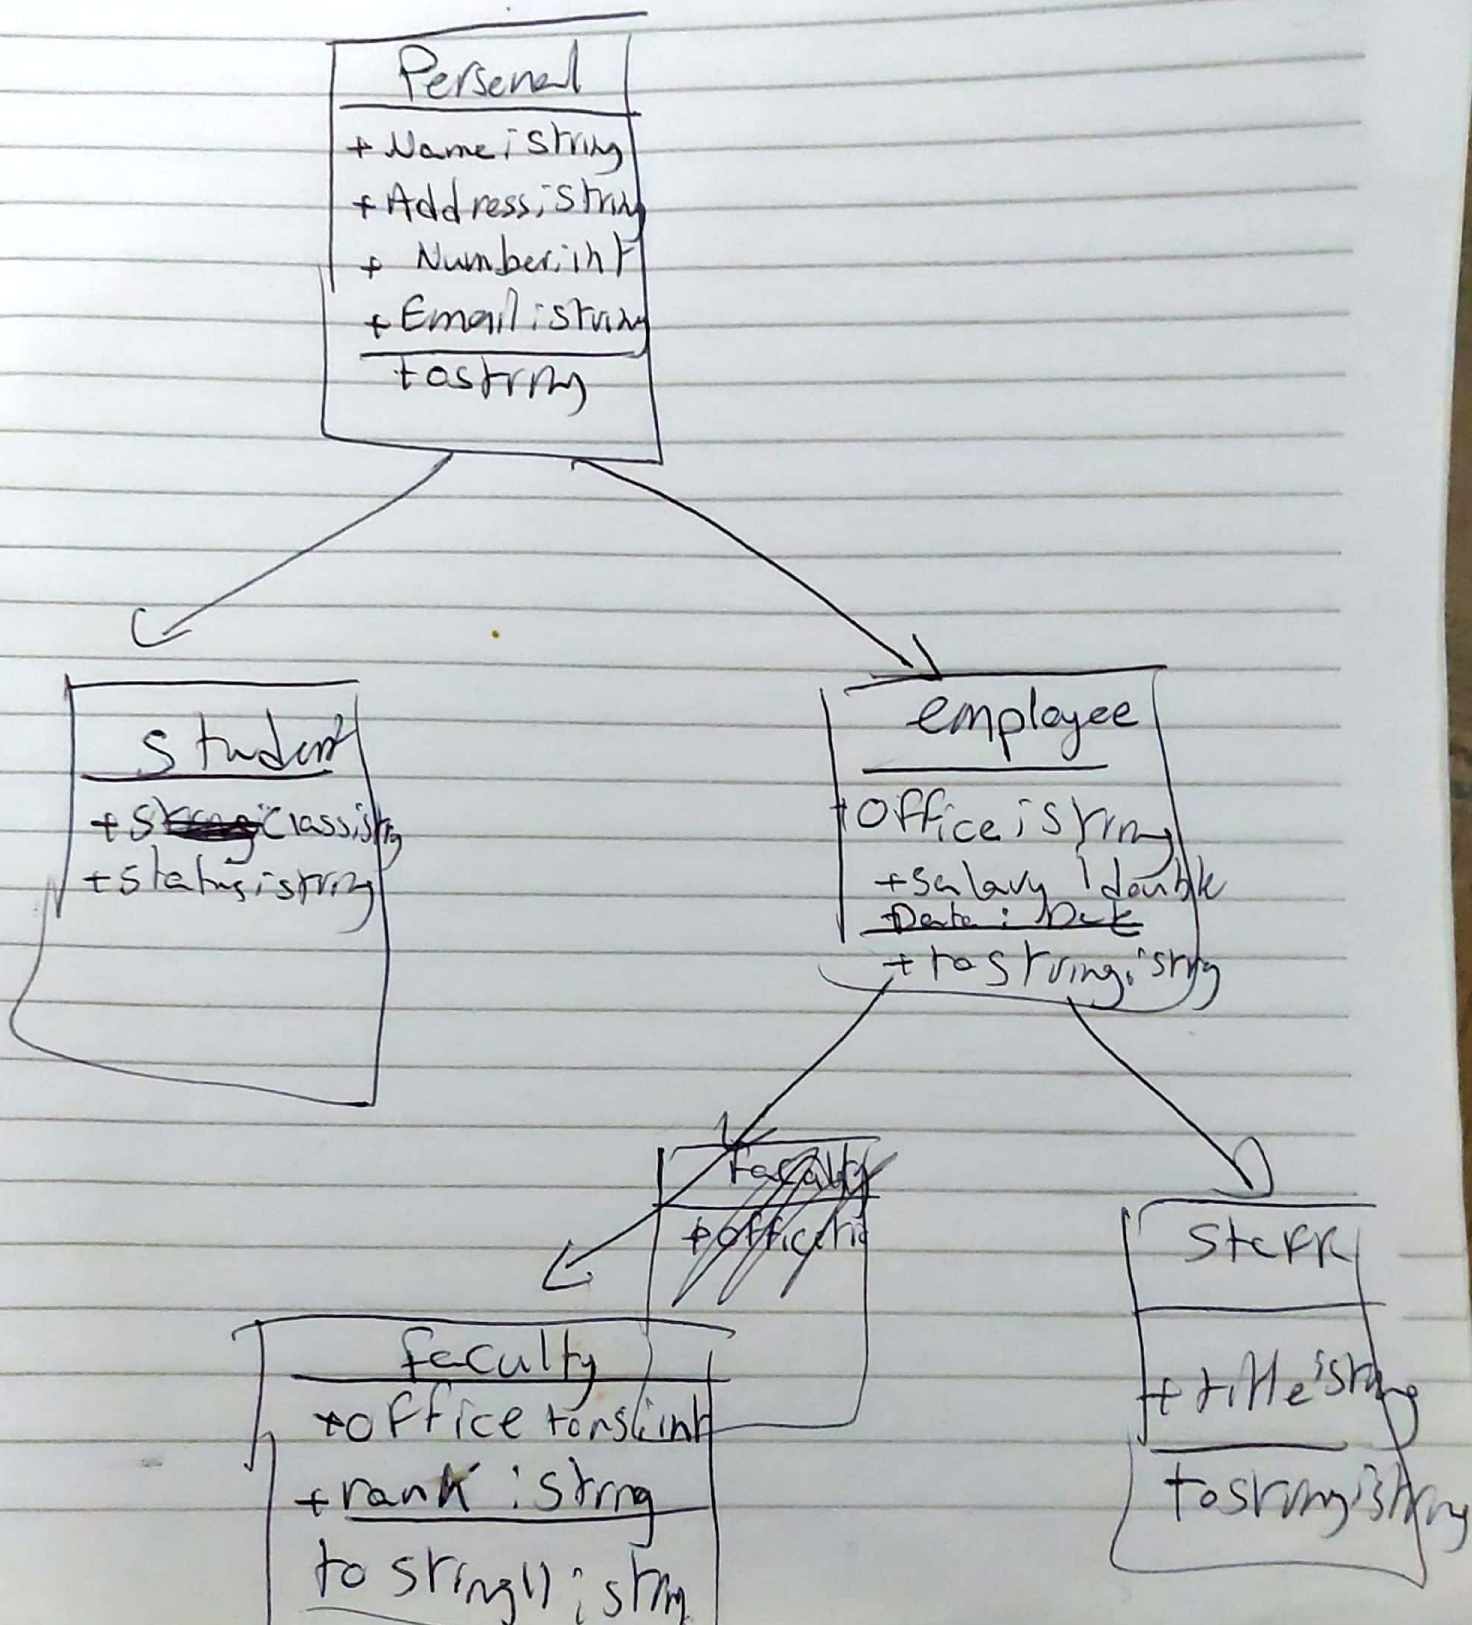 Personal
+ Name : string
+ Address : string
+ Number : int
+ Email : string
tostring
Student
+ Class : strg
+ Status : string
employee
+ Office : string
+ Salary : double
+ Date : Date
+ tostring : string
faculty
+ office : hi
Staff
+ title : string
tostring : string
faculty
+ office : int
+ rank : string
to string() : string